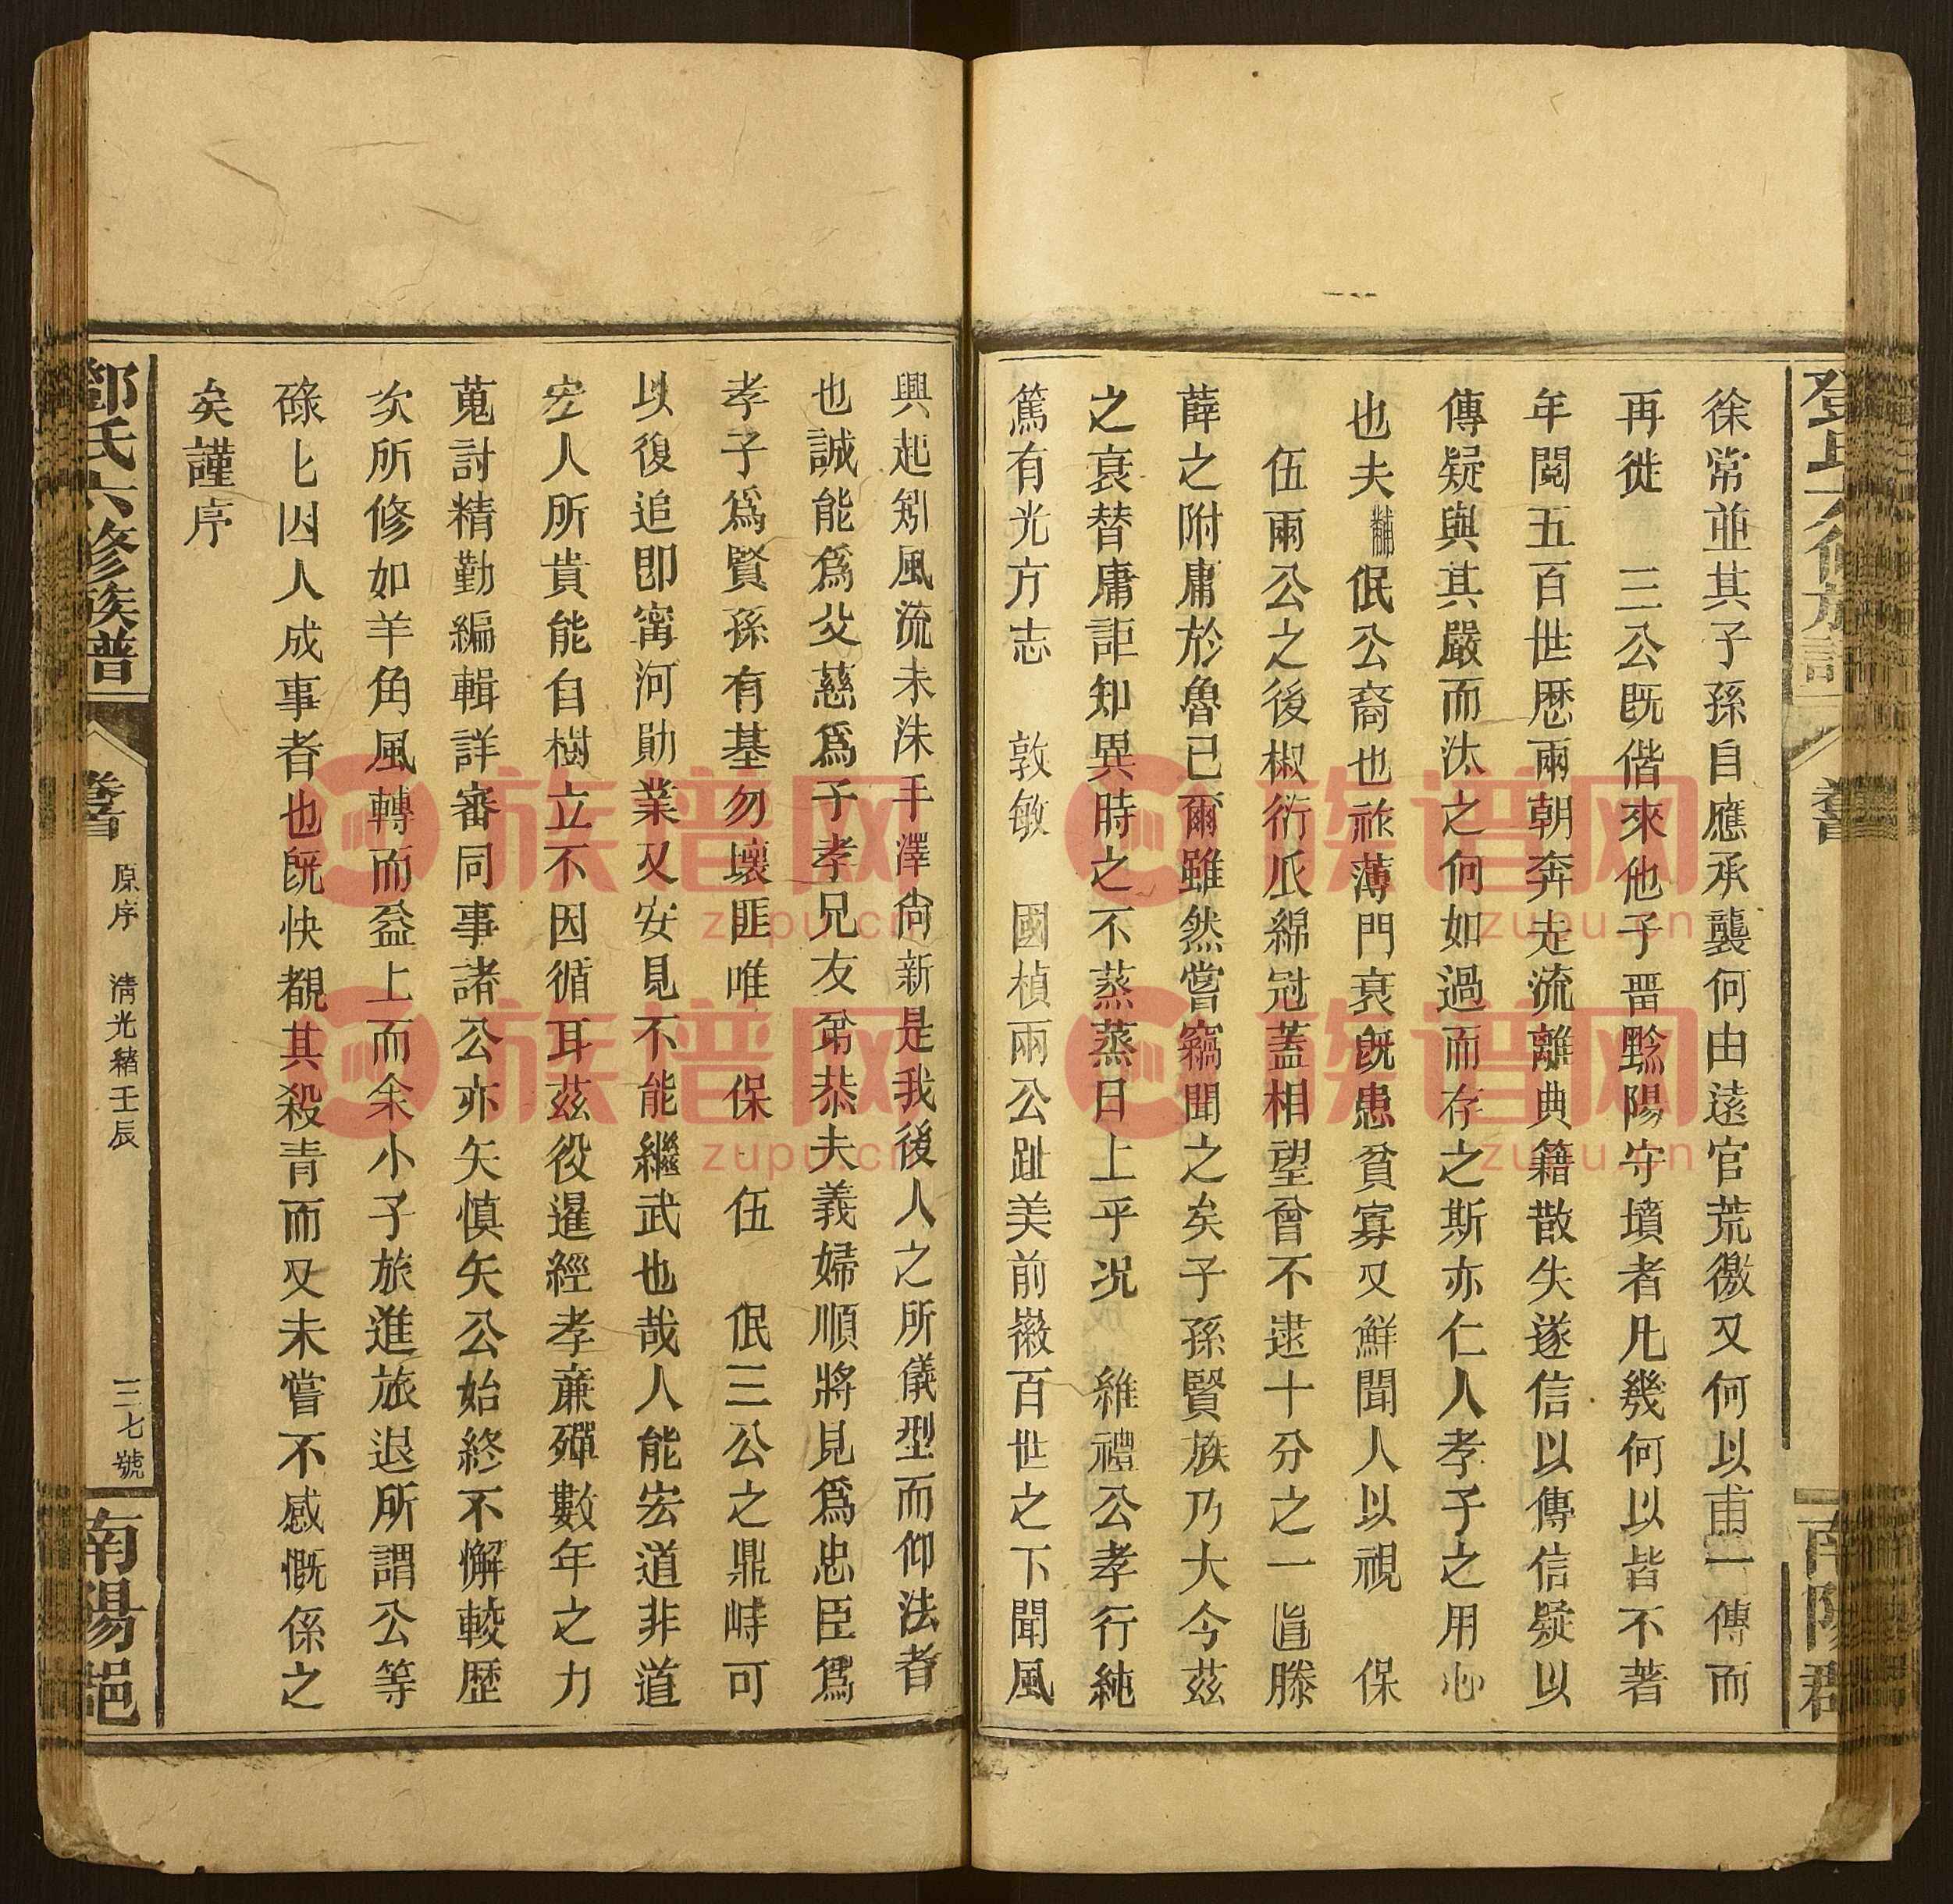 徐常並其子孫自應承襲何由遠官荒徼又何以甫一傳而
再徙　三公既偕來他子畱黔陽守墳者凡幾何以皆不著
年閱五百世歷兩朝奔走流離典籍散失遂信以傳信疑以
傳疑與其嚴而汰之何如過而存之斯亦仁人孝子之用心
也夫黼佷公裔也祚薄門衰既患貧寡又鮮聞人以視　保
伍兩公之後椒衍瓜綿冠蓋相望曾不逮十分之一眞滕
薛之附庸於魯已爾雖然嘗竊聞之矣子孫賢族乃大今茲
之衰替庸詎知異時之不蒸蒸日上乎况　維禮公孝行純
篤有光方志　敦敏　國楨兩公趾美前徽百世之下聞風
興起矧風流未沬手澤尚新是我後人之所儀型而仰法者
也誠能爲父慈爲子孝兄友弟恭夫義婦順將見爲忠臣爲
孝子爲賢孫有基勿壞匪唯　保　伍　佷三公之鼎峙可
以復追即甯河勛業又安見不能繼武也哉人能宏道非道
宏人所貴能自樹立不因循耳茲役暹經孝亷殫數年之力
蒐討精勤編輯詳審同事諸公亦矢慎矢公始終不懈較歷
次所修如羊角風轉而益上而余小子旅進旅退所謂公等
碌匕因人成事者也既快覩其殺青而又未嘗不感慨係之
矣謹序
鄧氏六修族譜
卷首
原序　清光緒壬辰
三七號
南陽
鄧氏六修族譜
卷首
南陽
族谱网
zupu.cn
族谱网
zupu.cn
族谱网
zupu.cn
族谱网
zupu.cn